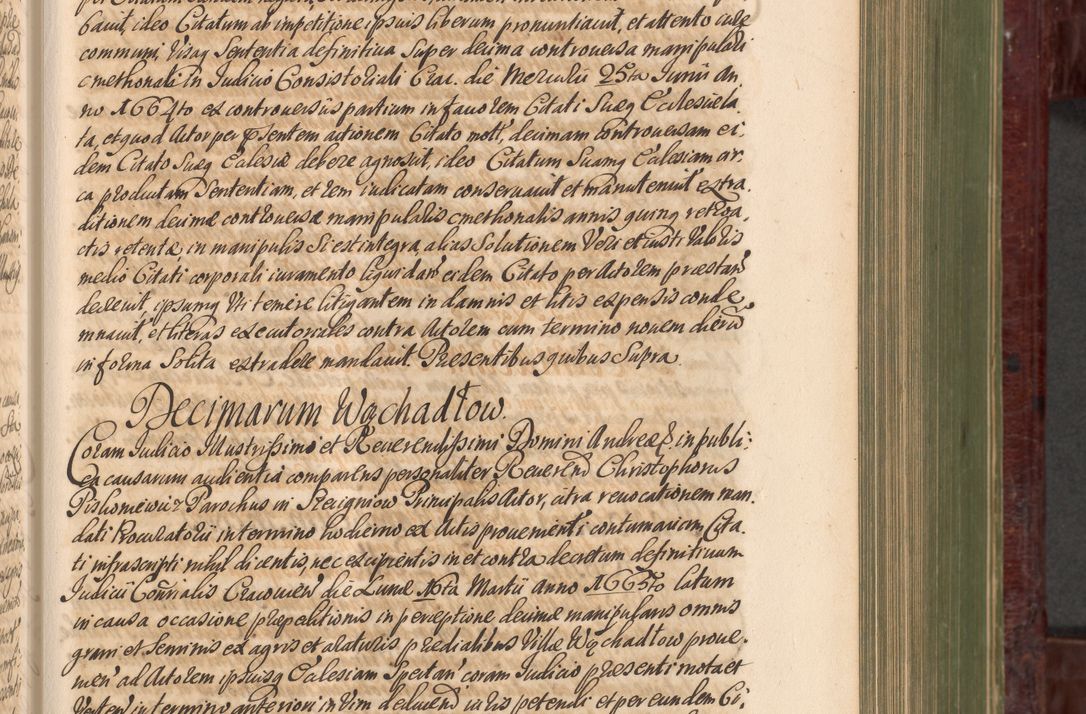 bavit, ideo Citatum ab impetitione ipsius liberum pronuntiavit, et attento cale
communi, Visaq Sententia definitiva Super decima controversa manipulari
cmethonali in Iudicio Consistoriali Crac. die Mercurii 25ta Iunii An
no 1664to ex controversiis partium in favorem Citati Suæq Ecclesiæ la
ta, et quod Actor per præsentem actionem Citato mott, decimam controversam ei:
dem Citato Suæq Eclesiæ debere agnovit, ideo Citatum Suamq Eclesiam cir:
ca productam Sententiam, et rem iudicatam conservavit et manutenuit extra
ditionem decimæ controversæ manipularis cmethonalis annis quinq retroa
ctis retentæ, in manipulis Si est integra, alias Solutionem Veri et iusti Valoris
medio Citati corporali iuramento liquidan eidem Citato per Actorem præstan
decrevit, ipsumq Vti temere litigantem in damnis et litis expensis conde
mnavit, et literas executoriales contra Actorem cum termino novem dierũ
in forma Solita extradere mandavit. Præsentibus quibus Supra.
Decimarum Wąchadłow.
Coram Iudicio Illustrissimi et Reverendissimi Domini Andreæ in publi:
ca causarum audientia comparens personaliter Reverend Christophorus
Parochus in Principalis Actor, citra revocationem man
dati Procuratorii in termino hodierno ex Actis provenienti contumaciam Cita
ti infrascripti nihil dicentis, nec excipientis in et contra decretum definitivum
IudiciiConñalis Cracovien die Lunæ 16ta Martii Anno 1665to latum
in causa occasione præpeditionis in perceptione decimæ manipularis omnis
grani et Seminis ex agris et araturis prædialibus Villæ Wąchadłow prove:
nien ad Actorem ipsiusq Eclesiam Spectan coram Iudicio præsenti mota et
Verten in termino anteriori in Vim deducend iuris petendi et per eundem Ci: